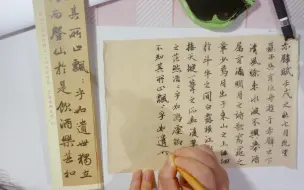 赤壁賦壬戌之秋七月既
望蘇子與客泛舟遊於赤壁之下
清風徐來水波不興舉酒
屬客誦明月之詩歌窈窕之
章少焉月出於東山之上徘徊
於斗牛之間白露橫江水
接天縱一葦之所如凌
之茫然浩浩乎如馮虛
不知其所止飄飄乎如遺
其所止飄飄乎如遺世獨立
而登仙於是飲酒樂甚扣